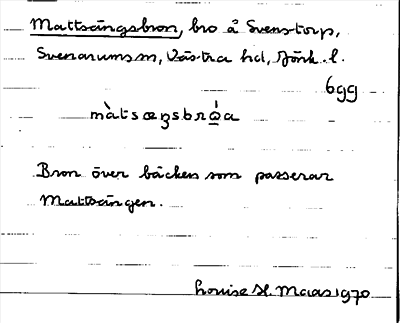 Mattsängsbron, bro å Svenstorp,
Svenarums sn, Västra hd, Jönk. l.
6gg
màtsæŋsbrώ̣a
Bron över bäcken som passerar
Mattsängen.
Louise H. Maas 1970